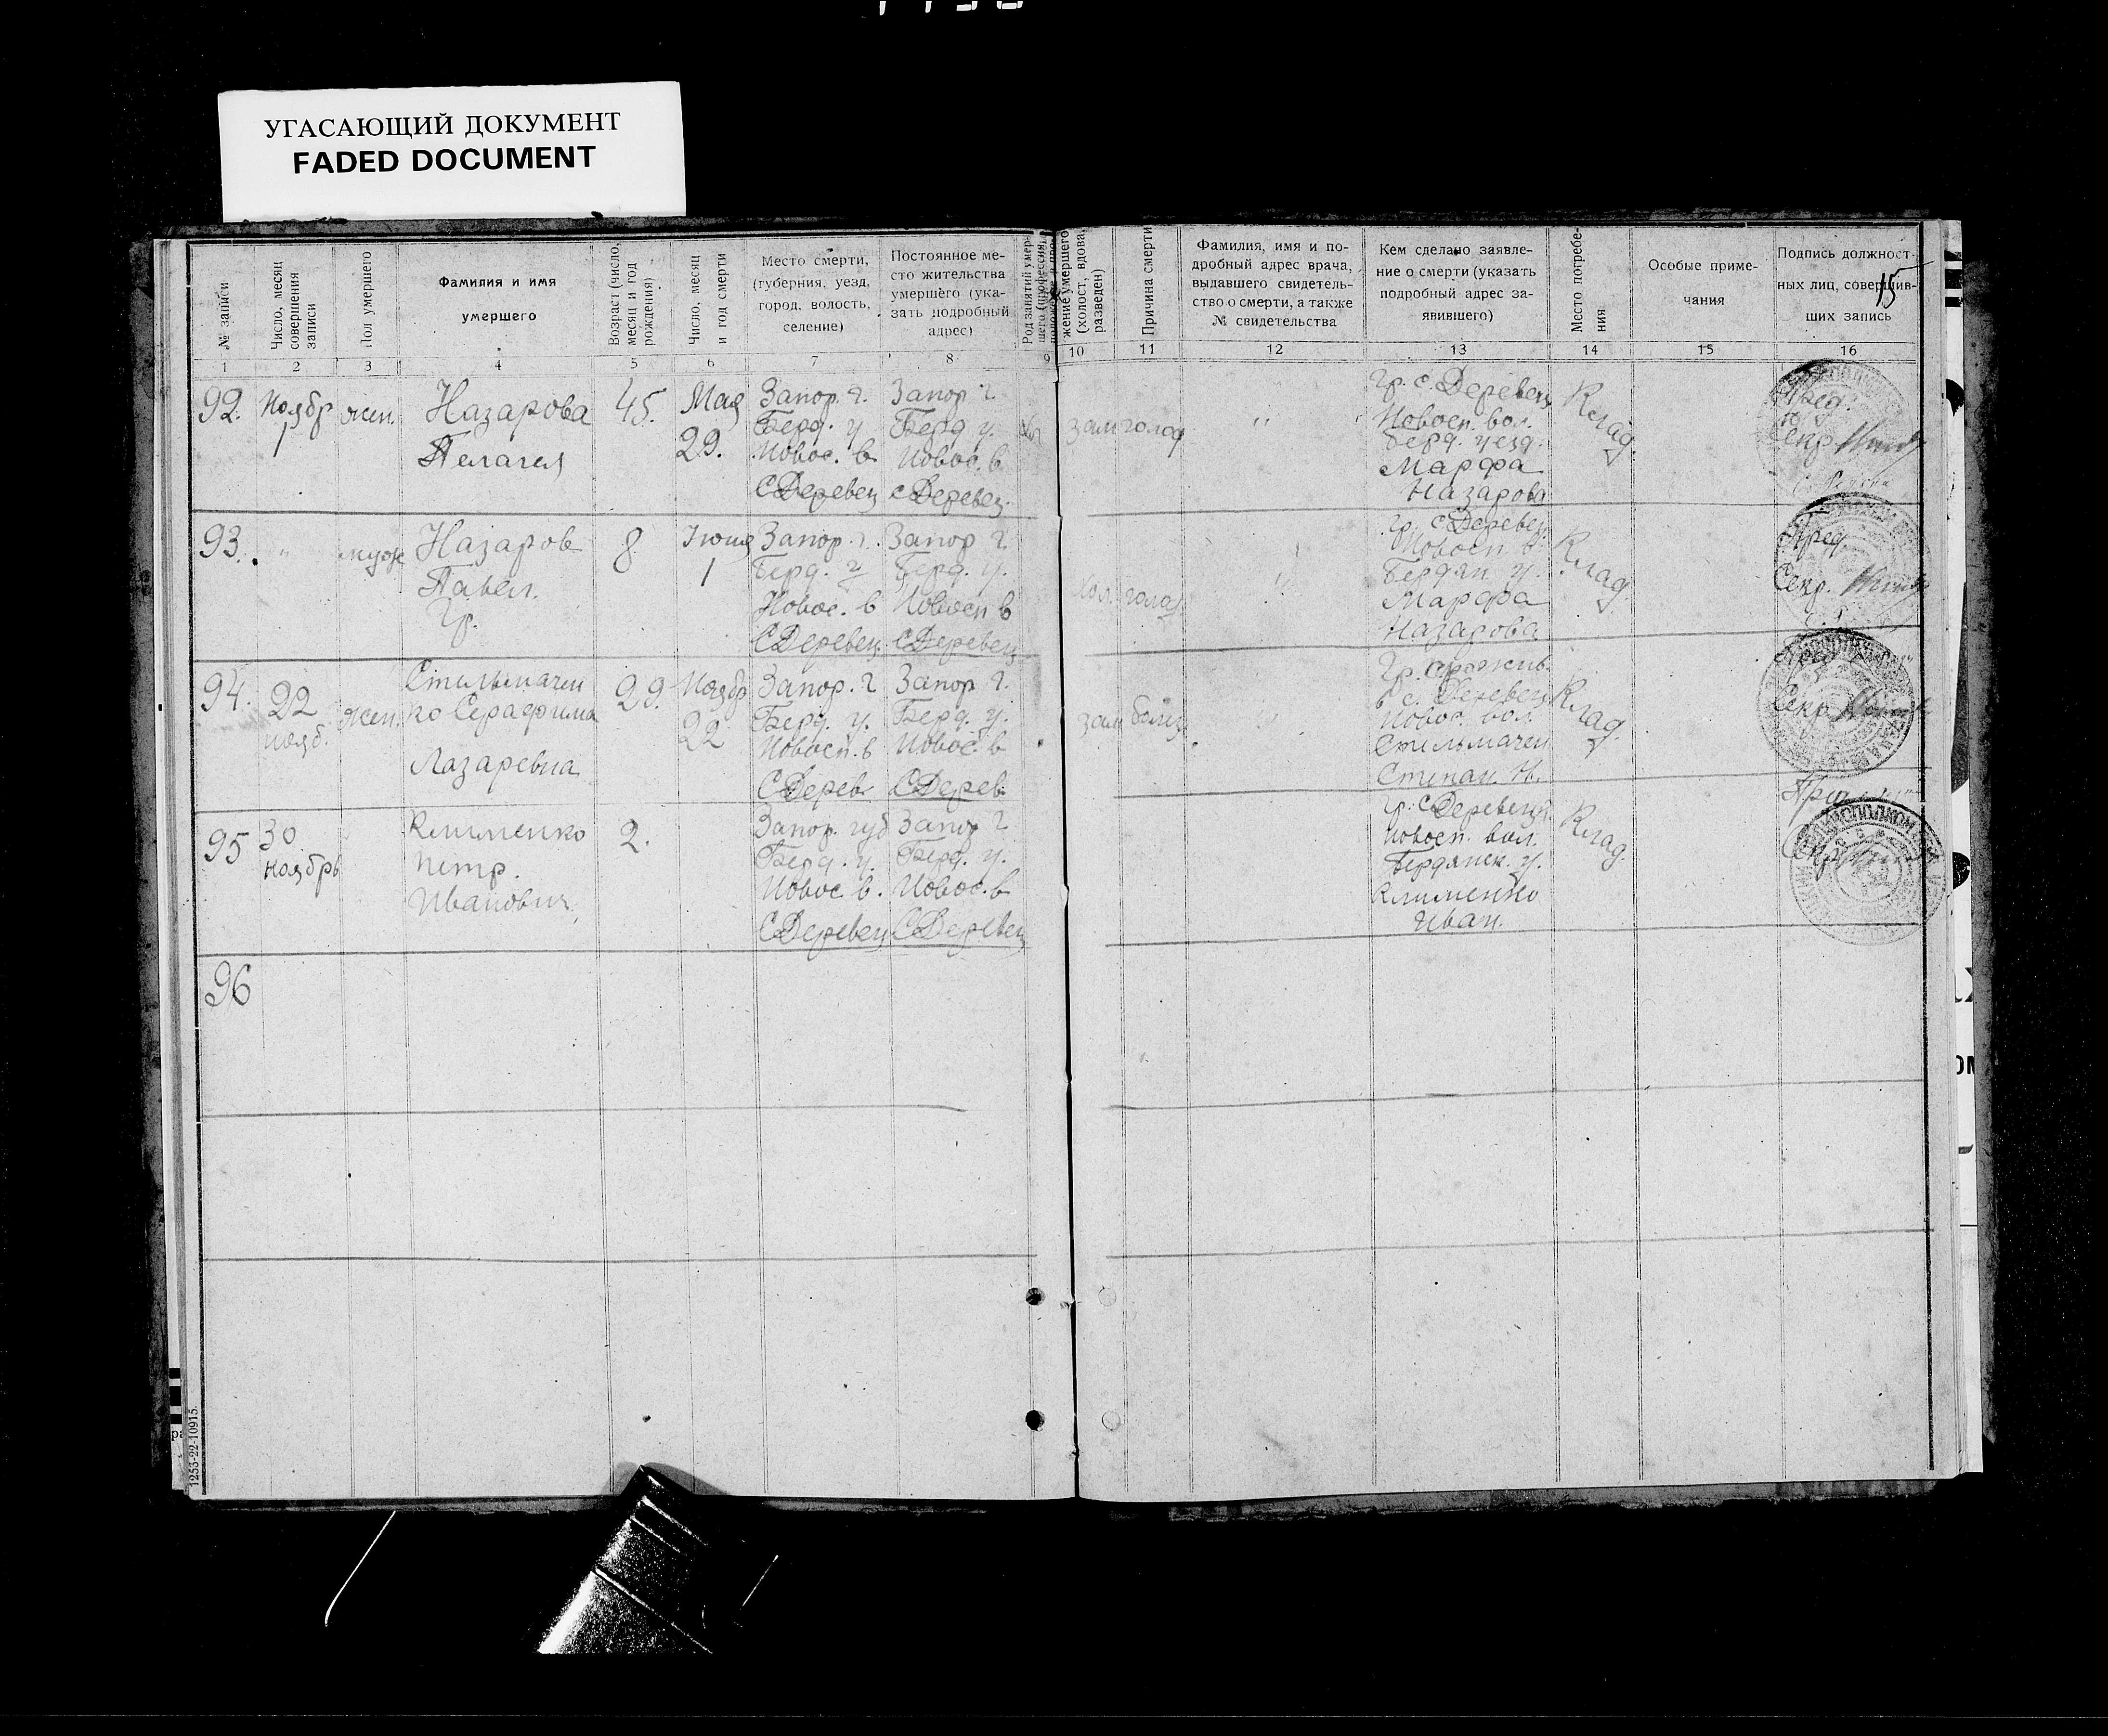 УГАСАЮЩИЙ ДОКУМЕНТ
FADED DOCUMENT
№ записи
Число, месяц совершения записи
Пол умершего
Фамилия и имя
умершего
Возраст (число, месяц и год рождения)
Число, месяц и год смерти
Место смерти,
(губерния, уезд,
город, волость,
селение)
Постоянное ме-
сто жительства
умершего (ука-
зать подробный
адрес)
Род занятий умер-
жение умершего (холост, вдова, разведен)
Причина смерти
Фамилия, имя и по-
дробный адрес врача,
выдавшего свидетель-
ство о смерти, а также
№ свидетельства
Кем сделано заявле-
ние о смерти (указать
подробный адрес за-
явившего)
Место погребе-
ния
Особые приме-
чания
Подпись должност-
ных лиц, совершив-
ших запись
15
1 2 3 4 5 6 7 8 9 10 11 12 13 14 15 16
92.
Ноябр
1
жен.
Назарова
Пелагея
45.
Мая
29.
Запор. г.
Берд. у
Новос. в
С Деревец
Запор г.
Берд у.
Новос. в
с Деревец.
зам
голод
"
Гр. с. Деревец
Новосп. вол.
Берд. уезд.
Марфа
Назарова
Клад.
Пред.
Секр
93.
"
муж
Назаров
Павел.
Гр.
8.
Июня
1
Запор. г.
Берд. у
Новос. в
С Деревец
Запор г.
Берд. у.
Новосп в
с Деревец
хол.
голод
"
гр. с Деревец
Новосп. в
Бердян. у.
Марфа
Назарова
Клад.
Пред
Секр.
94.
22
нояб.
жен.
Стильмачен
ко Серафима
Лазаревна
29.
Ноябр
22
Запор. г
Берд. у.
Новосп. в
С Дерев
Запор г.
Берд. у.
Новос. в
С Дерев.
зам
"
Гр. прожив.
в с. Деревец
Новос. вол.
Стильмачен
Степан. Ив.
Клад
Пред
Секр
95
30
ноябрь
Клименко
Петр.
Иванович
2.
Запор. губ
Берд. у.
Новос в.
С Деревец
Запор г
Берд. у.
Новос. в
С Деревец
гр. с Деревец.
Новосп. вол.
Бердянск. у.
Клименко
Иван.
Клад.
Пред
Секр
96
1253-22-10915.